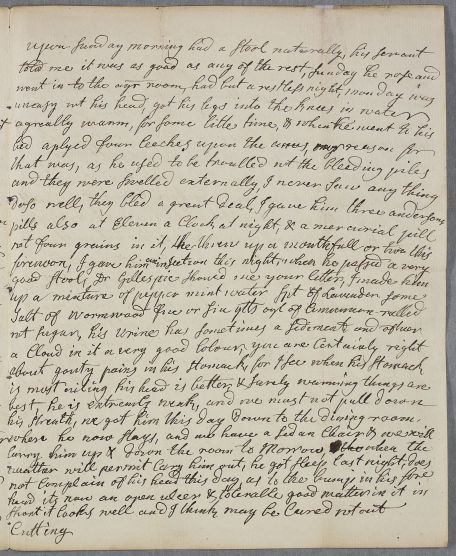 upon Sunday morning had a Stool naturally, his servant
told me it was as good as any of the rest, Sunday he rose and
went in to the room, had but a restless night, monday was
uneasy wt his head, got his legs into the knees in water
agreally warm, for some little time, & when he went to his
bed aplyed four Leeches upon the anus my reason for
that was, as he used to be troubled wt the bleeding piles
and they were swelled externally, I never saw any thing
doso well, they bled a great deal, I gave him three andersons
pills also at Eleven a Clock at night, & a mercurial pill
wt four grains in it, he threw up a mouthfull or two this
forenoon, I gave him an this night, when he passed a very
good Stool, Dr Gillespie showed me your letter, I made him
up a mixture of pepper mint water Spt of Lavender some
Salt of Wormwood five or Six gtts oyl of Cinnamon rubed
wt sugar, his Urine has Sometimes a Sediment and often
a Cloud in it a very good Colour, you are Certainly right
about gouty pains in his Stomack, for I see when his Stomach
is most his head is better, & Surely warming things are
best, he is extreamly weak, and we must not pull down
his Strenth, we got him this day down to the dining room,
where he now Stays, and we have a Sedan Chair & we will
Carry him up & down the room to Morrow, when the
weather will permit Cary him out, he got Sleep last night, does
not complain of his head this day, as to the in his fore
head its now an open ulcer & tolerable good matter in it in
Short it looks well and I think may be Cured wtout
Cutting